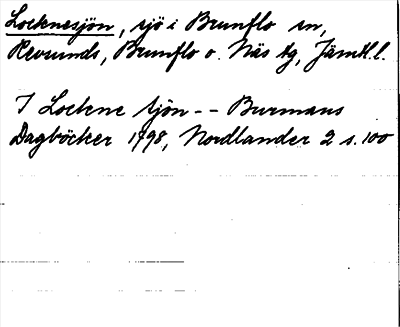 Locknesjön, sjö i Brunflo sn,
Revsunds, Brunflo o. Näs tg, Jämtl. l.
I Lockne sjön -- Burmans
Dagböcker 1798, Nordlander 2 s. 100